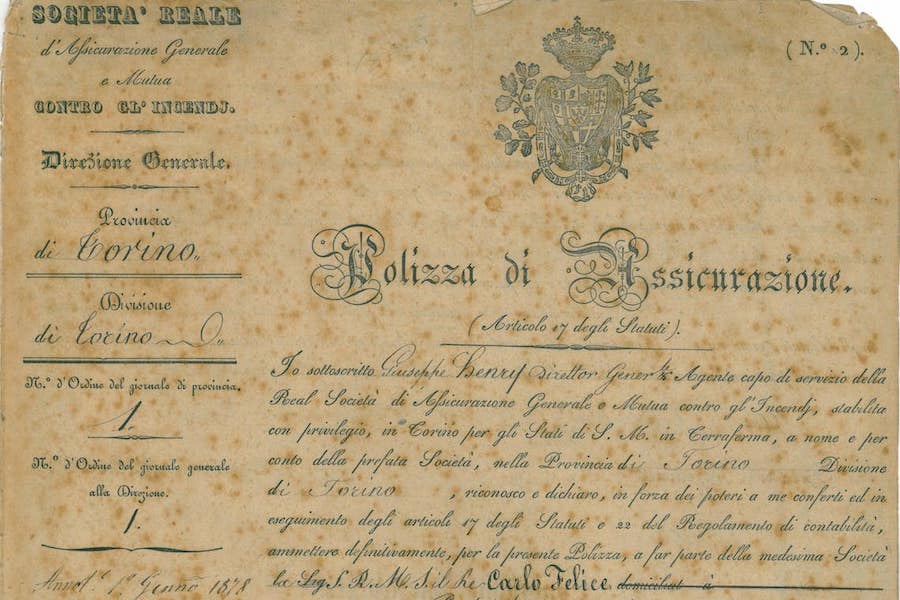 SOCIETA' REALE
d'Assicurazione Generale
e Mutua
CONTRO GL' INCENDJ.
Direzione Generale.
Provincia
di Torino.,
Divisione
di Torino
N.º d'Ordine del giornale di provincia.
1.
N.º d'Ordine del giornale generale
alla Direzione.
1.
1º Genno 1828
(N.º 2).
Polizza di Assicurazione.
(Articolo 17 degli Statuti).
Io sottoscritto Giuseppe Henry Direttor Gener.le Agente capo di servizio della
Real Società di Assicurazione Generale e Mutua contro gl'Incendj, stabilita
con privilegio, in Torino per gli Stati di S. M. in Terraferma, a nome e per
conto della prefata Società, nella Provincia di Torino Divisione
di Torino , riconosco e dichiaro, in forza dei poteri a me conferti ed in
eseguimento degli articoli 17 degli Statuti e 22 del Regolamento di contabilità,
ammettere definitivamente, per la presente Polizza, a far parte della medesima Società
la Sig S. R. M. il Re Carlo Felice domiciliat à